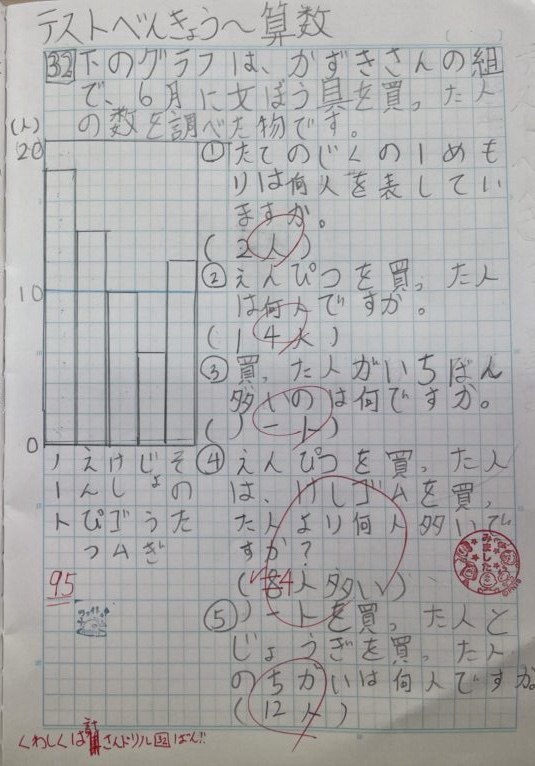 テストべんきょう〜算数
32 下のグラフは、かずきさんの組
で、6月に文ぼう具を買った人
の数を調べた物です。
(人)
20
10
0
ノート
えんぴつ
けしゴム
じょうぎ
その た
①たてのじくの1めも
りは何人を表してい
ますか。
(2人)
②えんぴつを買った人
は何人ですか。
(14人)
③買った人がいちばん
多いのは何ですか。
(ノート)
④えんぴつを買った人
は、けしゴムを買っ
た人より何人多いで
すか?
(4人多い)
⑤ノートを買った人と
じょうぎを買った人
のちがいは何人ですか。
(12人)
95
みました
くわしくは計さんドリル32ばん!!